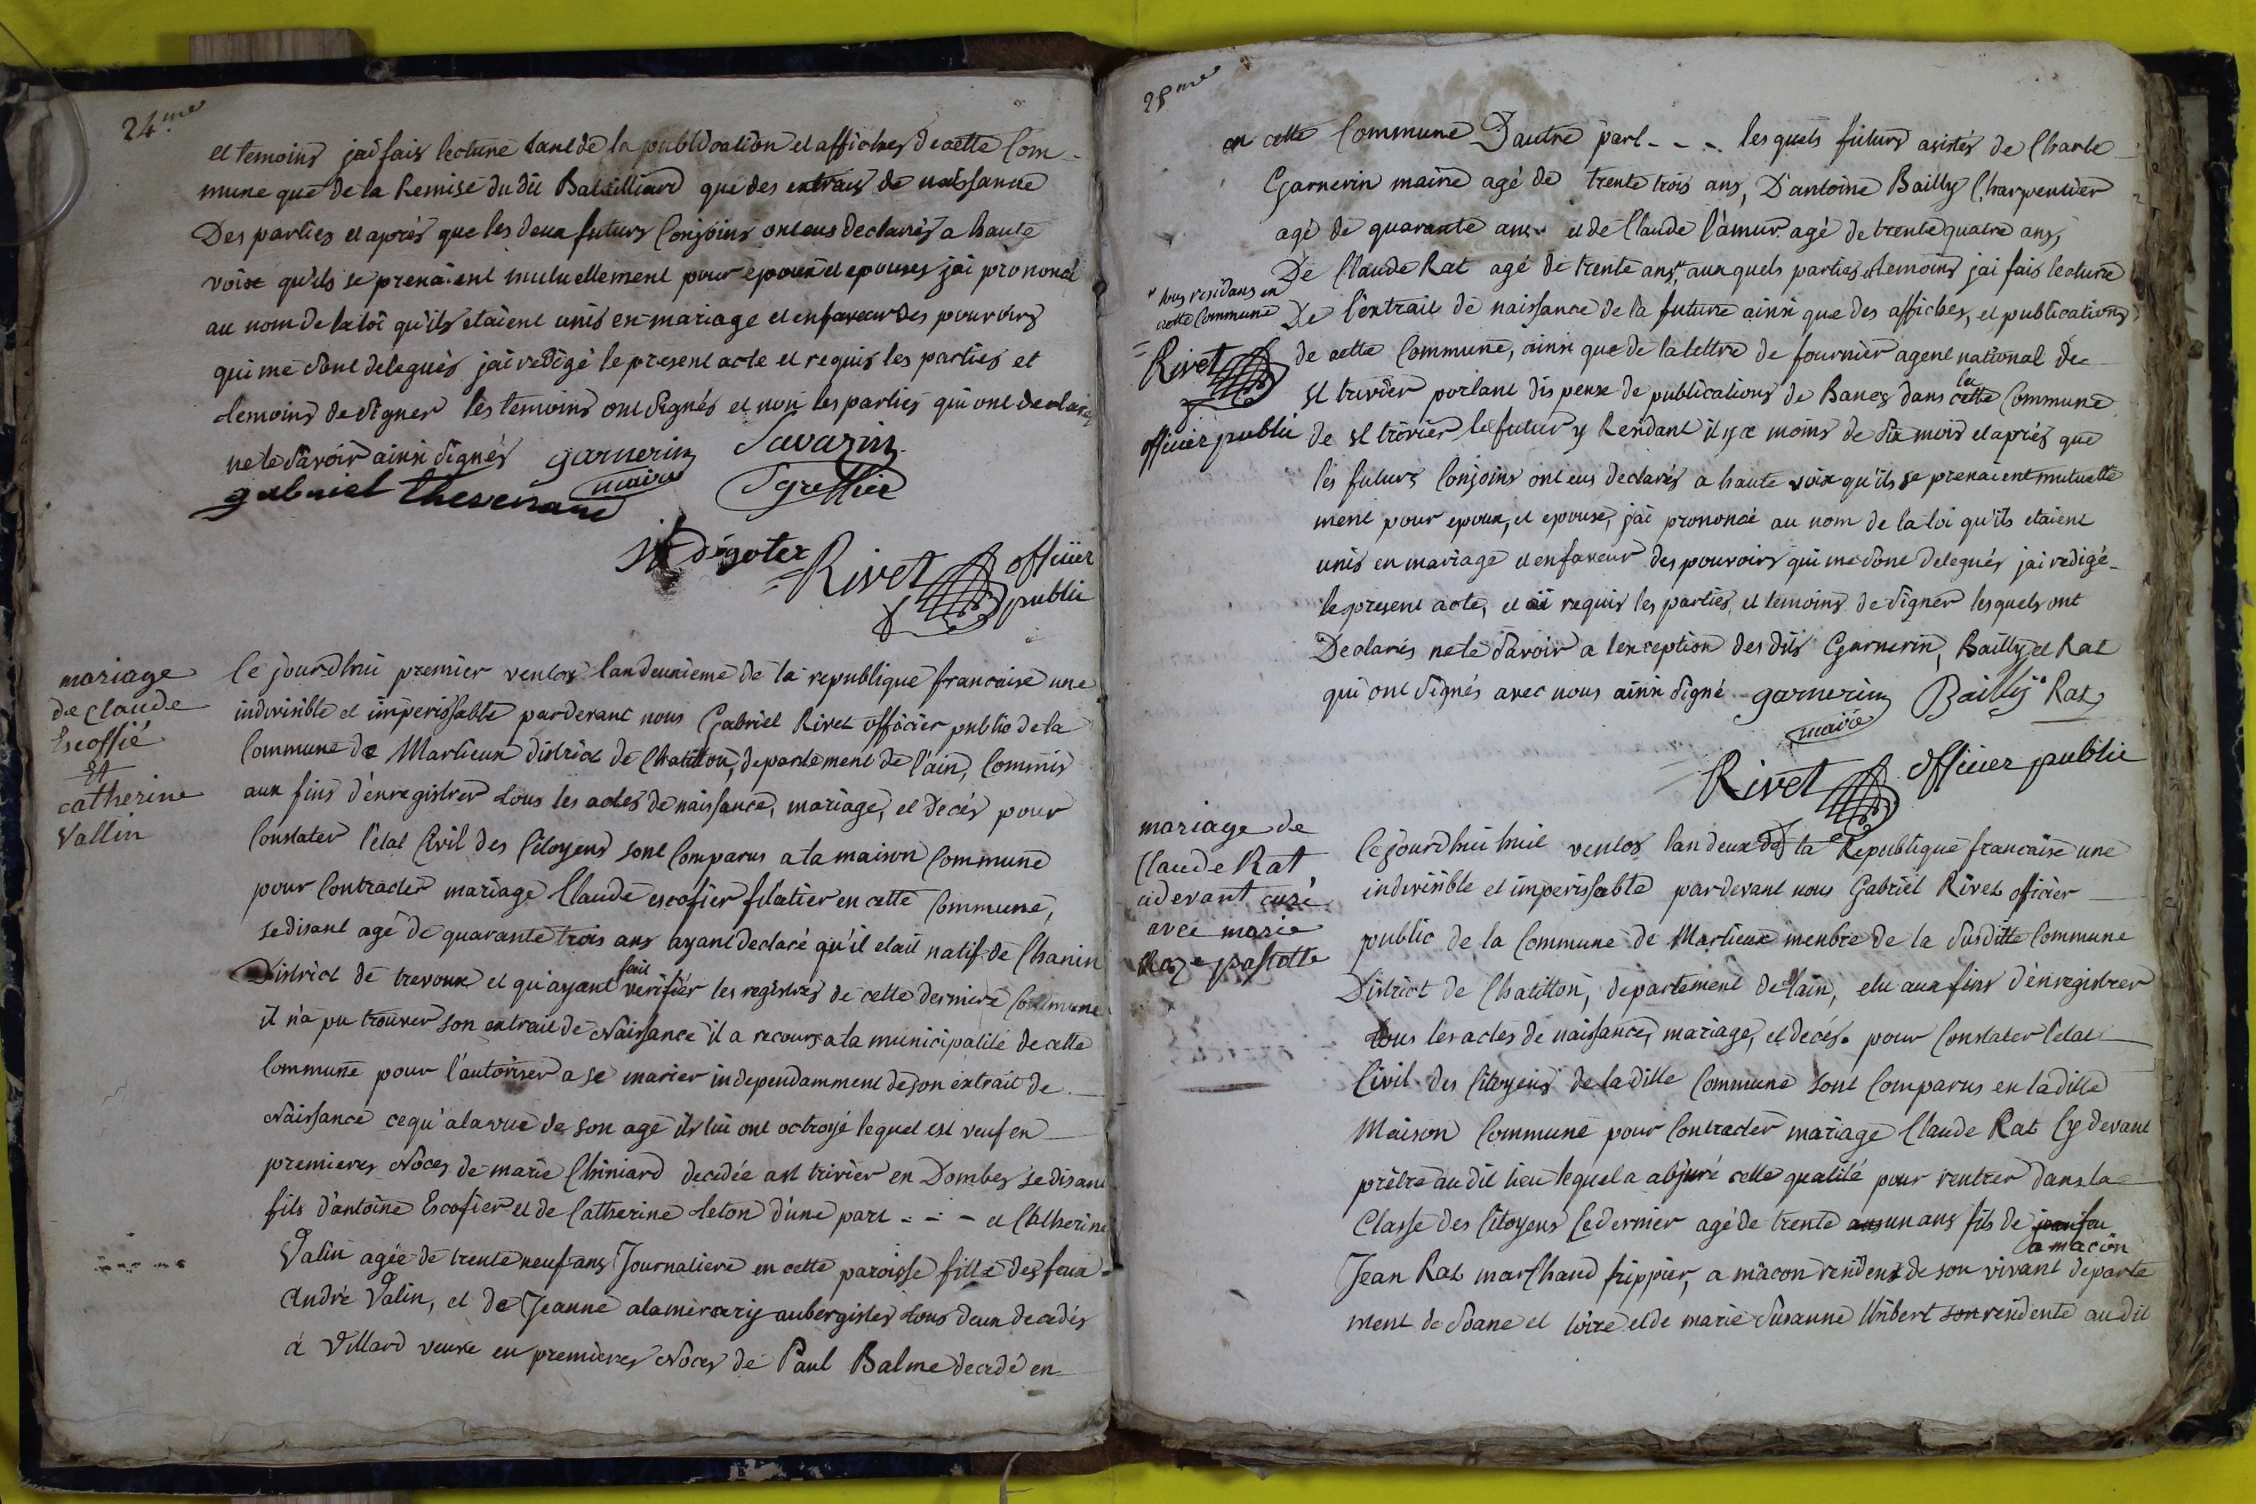 24.me
et temoins jai fais lecture tant de la publication et affiches de cette Com-
mune que de la Remise du dit Batailliard que des extrais de naissance
Des parties et aprés que les deux futurs Conjoins ont eus declarés a haute
voix qu'ils se prenaient mutuellement pour epoux et epouses jai prononcé
au nom de la loi qu'ils etaient unis en mariage et en faveur des pouvoirs
qui me sont delegués jai redigé le present acte et requis les parties et
temoins de signer les temoins ont signés et non les parties qui ont declarés
ne le savoir ainsi signés garnerin Savarin
gabriel thevenard maire Sgreffier
Rivet officier
public
mariage
de claude
Escoffié
et
catherine
vallin
Ce jourdhui premier ventos landeuxieme de la republique francaise une
indivisible et imperissable pardevant nous Gabriel Rivet officier public de la
Commune de Marlieux district de Chatillon, departement de l'ain, Commis
aux fins d'enregistrer tous les actes de naissance, mariage, et Decés pour
Constater l'etat Civil des Citoyens sont Comparus a la maison Commune
pour Contracter mariage Claude escofier filatier en cette Commune,
se disant agé de quarante trois ans ayant declaré qu'il etait natif de Chanin
District de trevoux et qu'ayant fait verifier les registres de cette derniere Commune
il n'a pu trouver son extrait de Naissance il a recours a la municipalité de cette
Commune pour l'autoriser a se marier independamment de son extrait de
Naissance cequ'a la vue de son age ils lui ont octroyé lequel est veuf en
premieres Noces de marie Chiniard decedée a st trivier en Dombes se disant
fils d'antoine Escofier et de Catherine leton d'une part - - - et Catherine
Valin agée de trente neuf ans Journaliere en cette paroisse fille des feux
André Valin, et de Jeanne alamercery aubergistes tous deux decedés
a Villard veuve en premieres Noces de Paul Balme decedé en
25me
en cette Commune D'autre part - - - lesquels futurs asistés de Charle
Garnerin maire agé de trente trois ans, D'antoine Bailly Charpentier
agé de quarante ans et de Claude l'amur agé de trente quatre ans,
De Claude Rat agé de trente ans, aux quels parties et temoins jai fais lecture
tous residans en
cette Commune
De l'extrait de naissance de la future ainsi que des affiches, et publications
Rivet
officier public
de cette Commune, ainsi que de la lettre de fournier agent national de
st trivier portant dispense de publications de Bancs dans la cette Commune
de st trivier le futur y Residant il y a moins de six mois et aprés que
les futurs Conjoins ont eus declarés a haute voix qu'ils se prenaient mutuelle
ment pour epoux, et epouse, j'ai prononcé au nom de la loi qu'ils etaient
unis en mariage et en faveur des pouvoirs qui me sont delegués jai redigé
le present acte, et ai requis les parties, et temoins de signer lesquels ont
Declarés ne le savoir a l'exception des dits Garnerin, Bailly et Rat
qui ont signés avec nous ainsi signé garnerin Bailly Rat
maire
Rivet officier public
mariage de
Claude Rat
cidevant curé
avec marie
Roze
Cejourdhui huit ventos lan deux de la Republique francaise une
indivisible et imperissable pardevant nous Gabriel Rivet oficier
public de la Commune de Marlieux menbre de la susditte Commune
District de Chatillon, departement de l'ain, elu aux fins d'enregistrer
tous les actes de naissance, mariage, et decés. pour Constater l'etat
Civil des Citoyens de la ditte Commune sont Comparus en laditte
Maison Commune pour Contracter mariage Claude Rat Cy devant
prêtre au dit lieu lequel a abjuré cette qualité pour rentrer dans la
Classe des Citoyens Ce dernier agé de trente un ans fils de feu
a macon
Jean Rat marchand frippier, a macon residens de son vivant departe
ment de Soane et loire et de marie Susanne Unbert son residente au dit